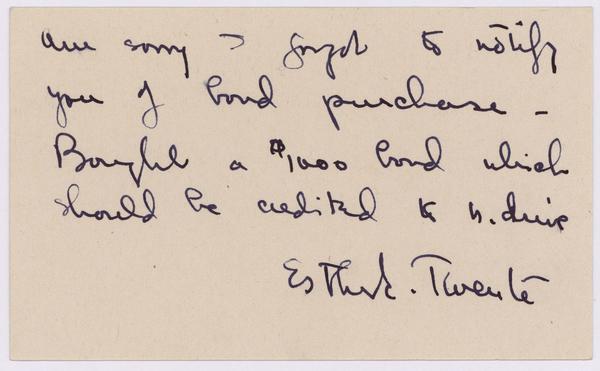 Am sorry I forgot to notify
you of bond purchase -
Bought a $1,000 bond which
should be credited to U. drive
Esther . Twente